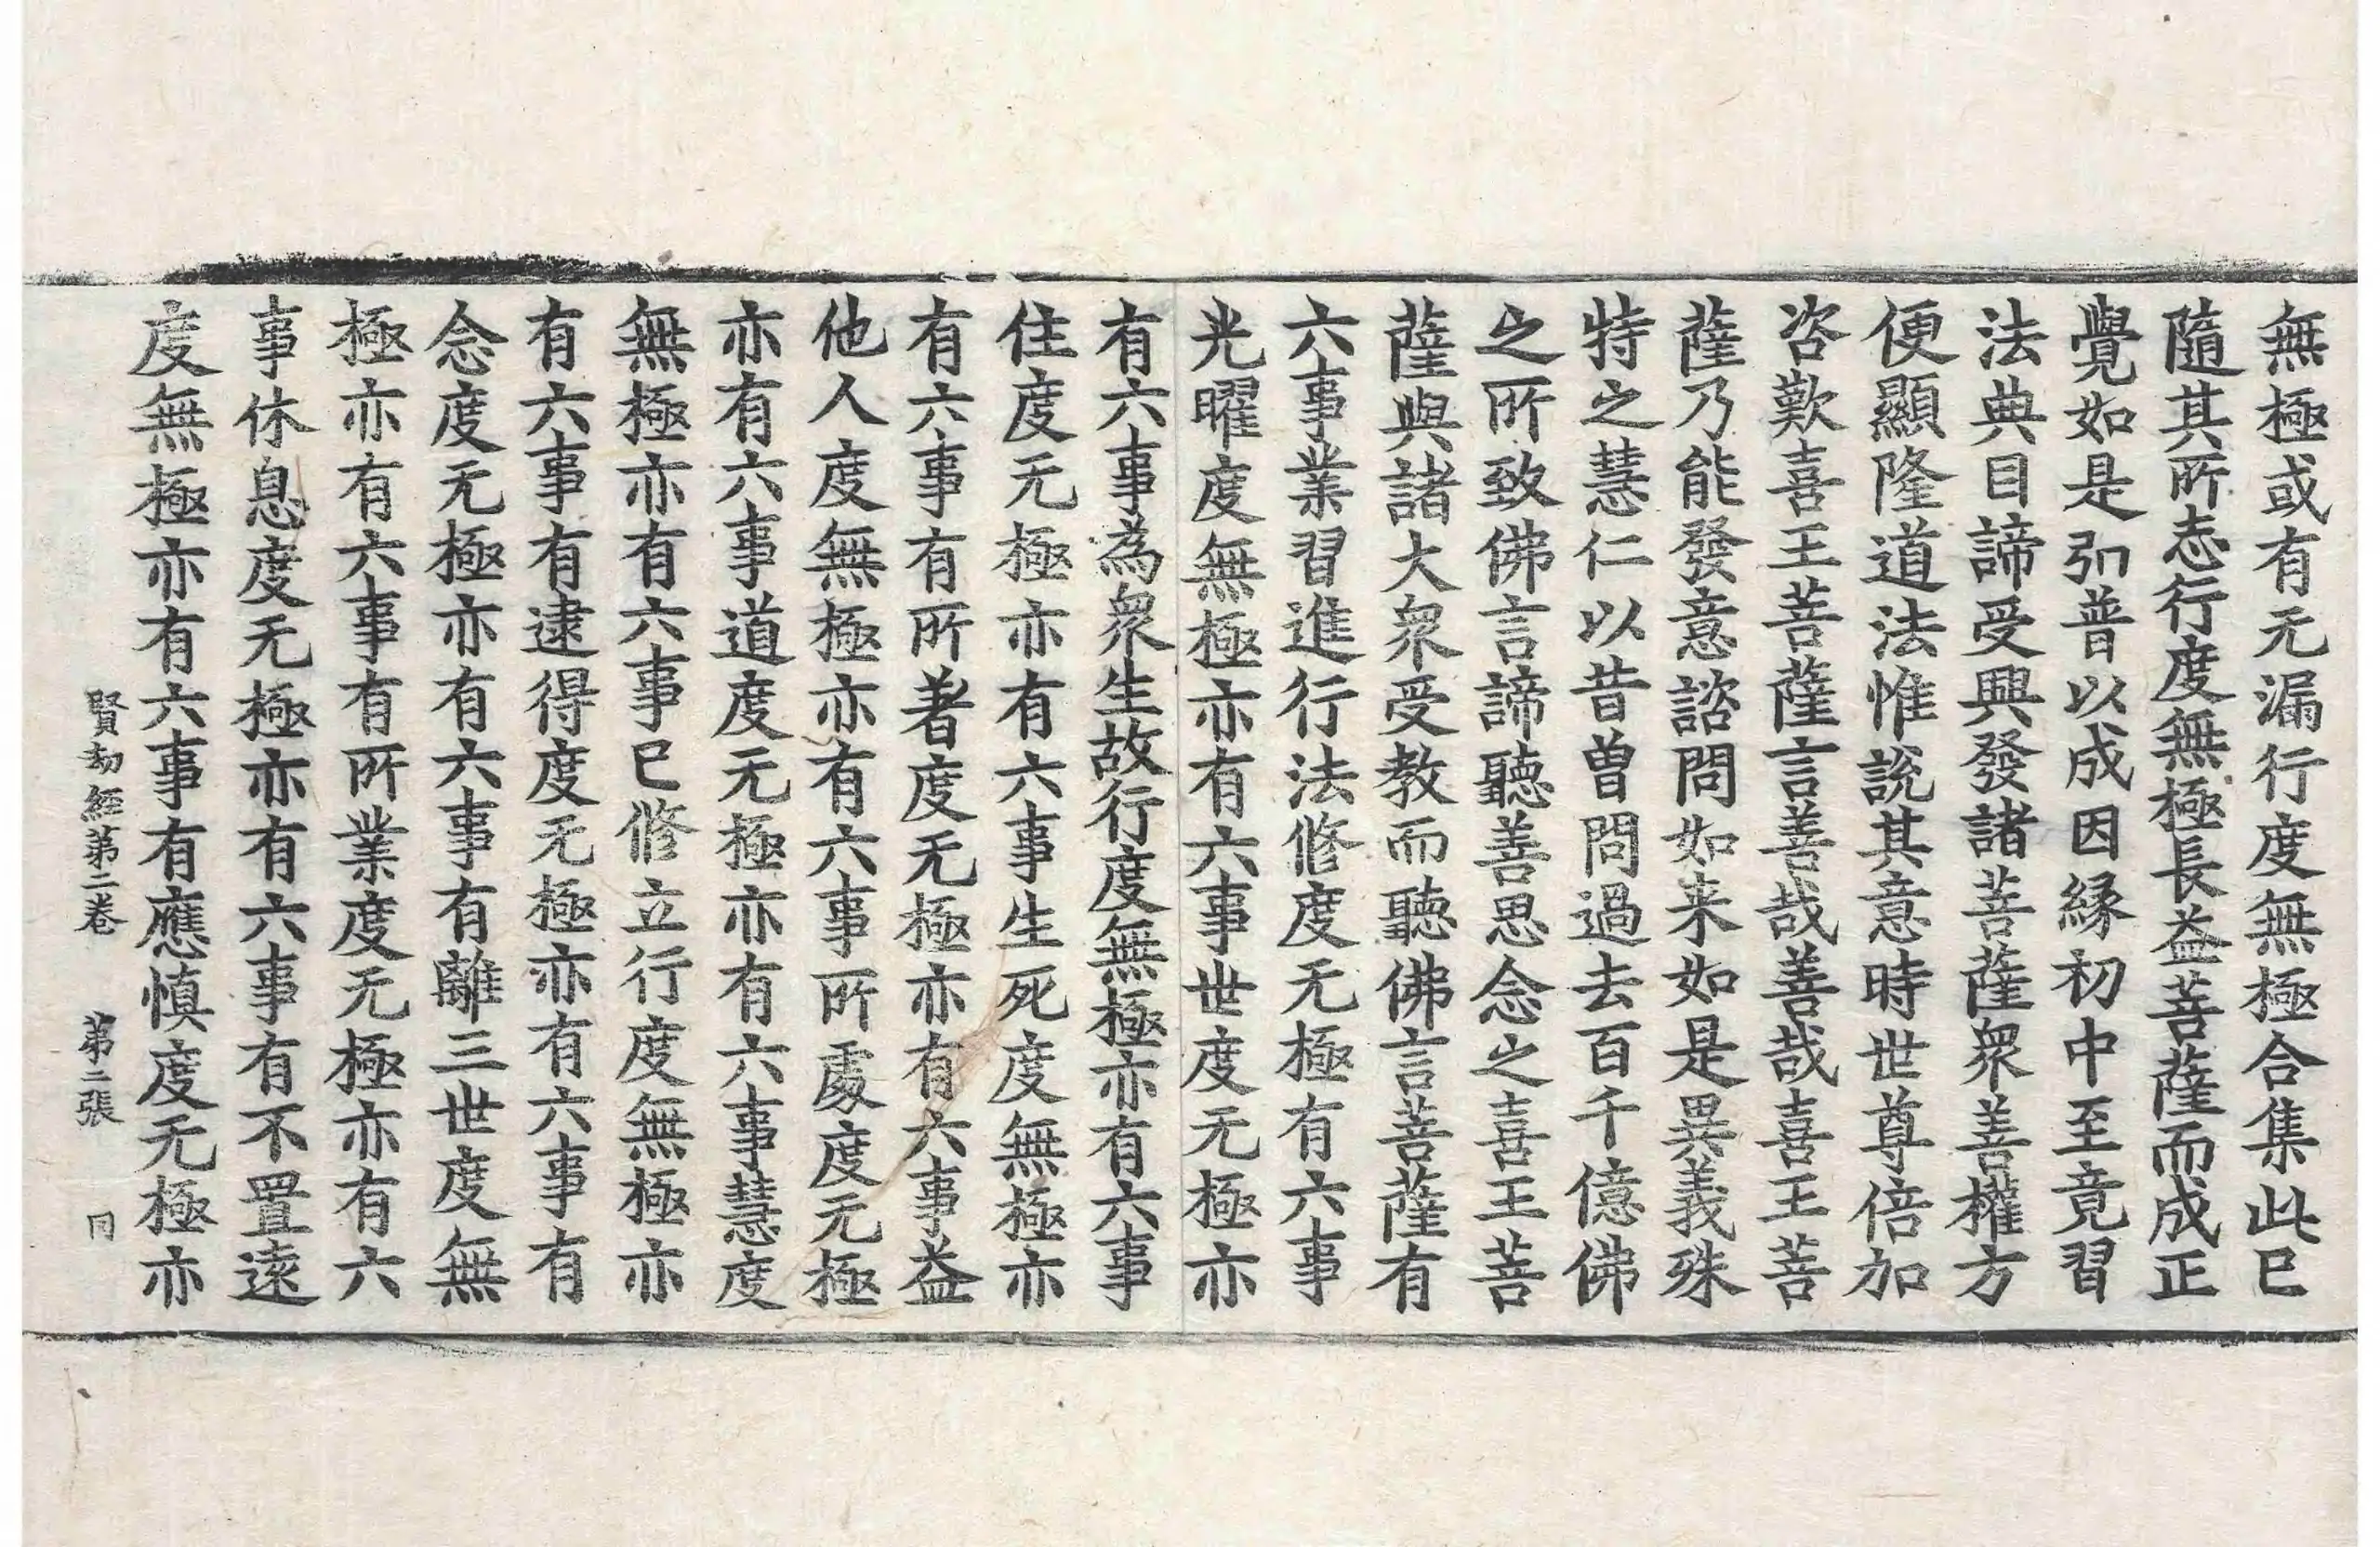 無極或有无漏行度無極合集此已
隨其所志行度無極長益菩薩而成正
覺如是引普以成因縁初中至竟習
法典目諦受興發諸菩薩衆善權方
便顯隆道法惟説其意時世尊倍加
咨歎喜王菩薩言善哉善哉喜王菩
薩乃能發意諮問如来如是異義殊
特之慧仁以昔曽問過去百千億佛
之所致佛言諦聽善思念之喜王菩
薩與諸大衆受教而聽佛言菩薩有
六事業習進行法修度无極有六事
光曜度無極亦有六事世度无極亦
有六事為衆生故行度無極亦有六事
住度无極亦有六事生死度無極亦
有六事有所著度无極亦有六事益
他人度無極亦有六事所處度元極
亦有六事道度无極亦有六事慧度
無極亦有六事已修立行度無極亦
有六事有逮得度无極亦有六事有
念度无極亦有六事有離三世度無
極亦有六事有所業度无極亦有六
事休息度无極亦有六事有不置遠
度無極亦有六事有應慎度无極亦
賢劫經第二卷 第二張 同